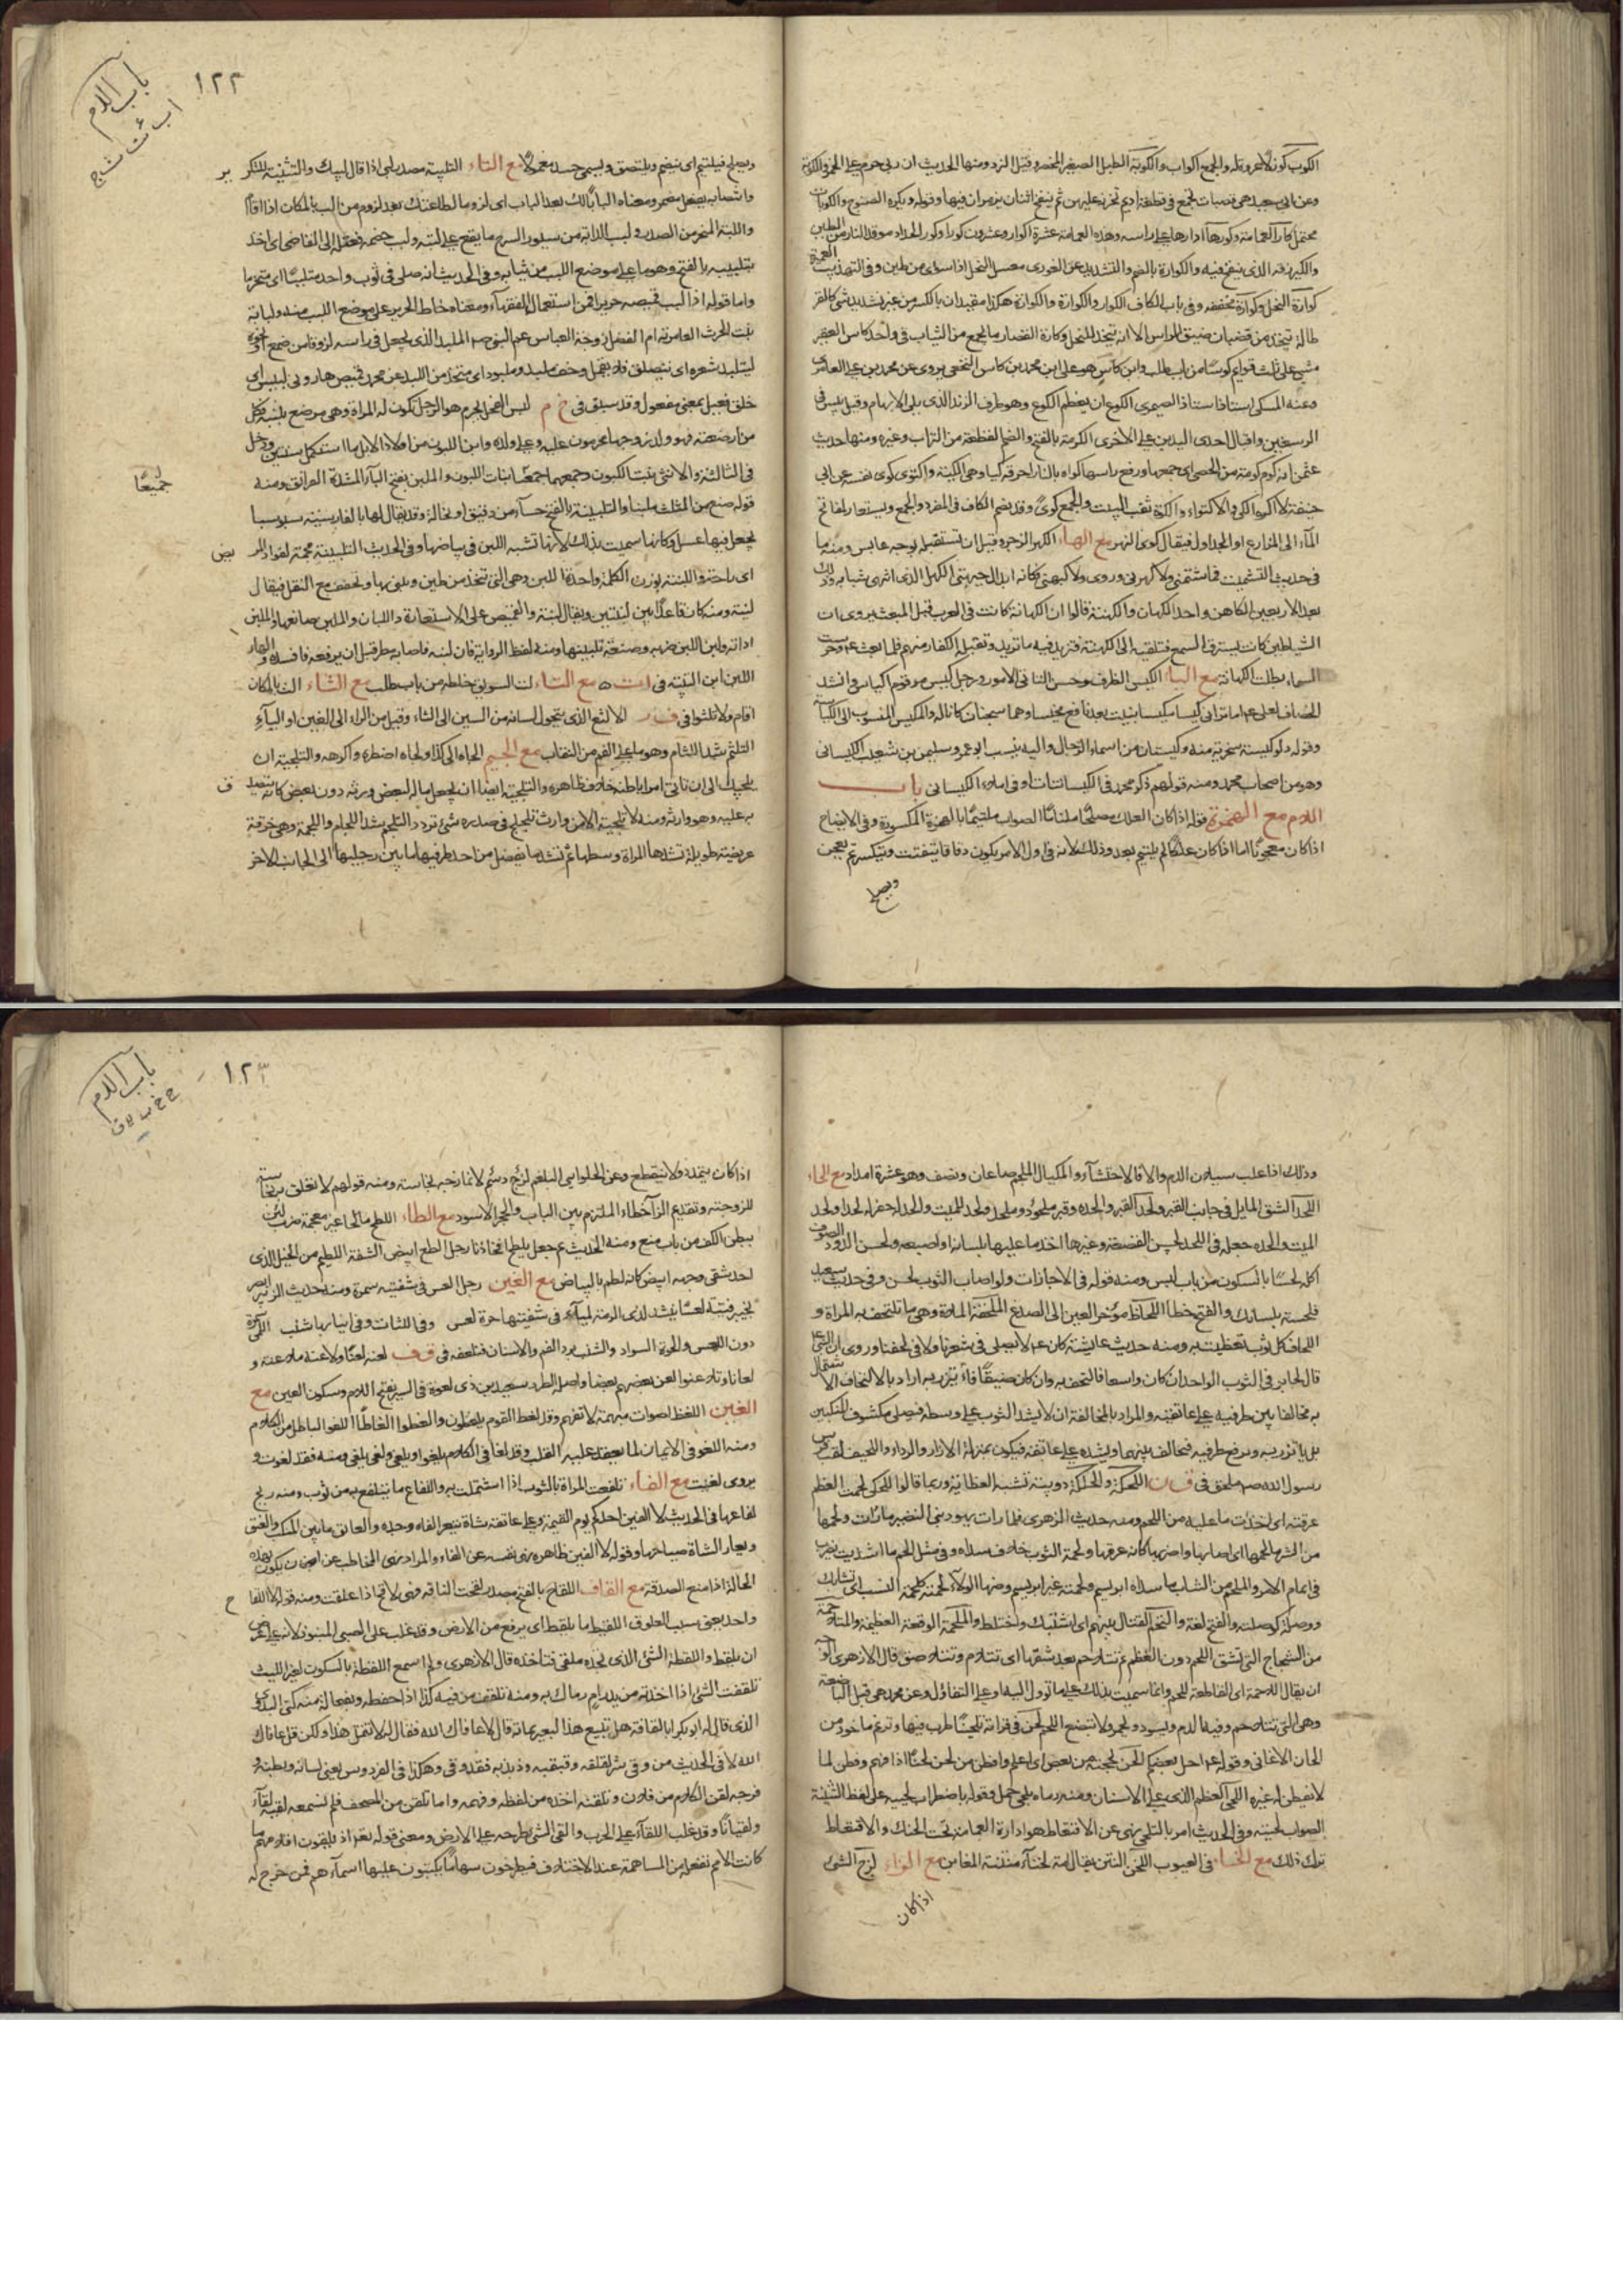 الكوب كوز لا عروة له والجمع اكواب والكوبة الطبل الصغير المخصر وقيل النرد ومنها الحديث ان ربى حرم على الخمر والكوبة
وعن ابى سعيد هى قصبات تجمع فى قطعة اديم تخرز عليهن ثم ينفخ اثنان يزمران فيها وقوله ويكره الصنوج والكوبات
محتمل كار العمامة وكورها ادارها على راسه وهذه العمامة عشرة اكوار وعشرون كورا وكور الحداد موقد النار من الطين
والكير زقه الذى ينفخ فيه والكوارة بالضم والتشديد عن الغورى معسل النحل اذا سوى من طين وفى التهذيب
كوارة النحل وكوارة مخففة وفى باب الكاف الكوار والكوارة والكوارة هكذا مقيدان بالكسر من غير تشديد شئ كالقر
طالة يتخذ من قضبان ضيق الراس الا انه يتخذ للنحل وكارة القصار ما يجمع من الثياب فى واحد كاس العقر
مشى على ثلث قوايم كوسا من باب طلب وابن كاس هو على ابن محمد بن كاس النخعى يروى عن محمد بن على العامرى
وعنه المسكى استاذ استاذ الصيمرى الكوع ان يعظم الكوع وهو طرف الزند الذى يلى الابهام وقيل يبس فى
الرسغين واقبال احدى اليدين على الاخرى الكومة بالفتح والضم القطعة من التراب وغيره ومنها حديث
عثمن انه كوم كومة من الحصى اى جمعها ورفع راسها كواه بالنار احرقه كيا وهى الكية واكتوى كوى نفسه عن ابى
حنيفة لا اكره الكى والاكتواء والكوة ثقب البيت والجمع كوى وقد يضم الكاف فى المفرد والجمع ويستعار لمفاتح
الماء الى المزارع او الجداول فيقال كوى النهر مع الهاء الكهر الزجر وقيل ان تستقبله بوجه عابس ومنه ما
فى حديث التشميت فما شتمنى ولا كهرنى وروى ولا كبهنى كانه ابدال جبهنى الكهل الذى انتهى شبابه وذلك
بعد الاربعين الكاهن واحد الكهان والكهنة قالوا ان الكهانة كانت فى العرب قبل المبعث يروى ان
الشياطين كانت تسترق السمع فتلقيه الى الكهنة فتزيد فيه ما تريد وتقبله الكفار منهم فلما بعث عم وحرست
السماء بطلت الكهانة مع الياء الكيس الظرف وحسن التانى الامور ورجل كيس من قوم اكياس وانشد
الخصاف لعلى عم اما ترانى كيسا مكيسا بنيت بعد نافع مخيسا وهما سجنان كانا له والمكيس المنسوب الى الكياسة
وقوله دلو كيسة سخرية منه وكيسان من اسماء الرجال واليه ينسب ابو عمرو سليمن بن شعيب الكيسانى
وهو من اصحاب محمد ومنه قولهم ذكر محمد فى الكيسانيات او فى املاء الكيسانى باب
اللام مع الهمزة قوله اذا كان العلك مصلحا ملتئما الصواب ملتئما بالهمزة المكسورة وفى الايضاح
اذا كان معجونا اما اذا كان علكا لم يلتئم بعد وذلك لانه فى اول الامر يكون دقاقا يتفتت ويتكسر ثم يعجن
ويصلح
باب اللام
ا ب ت ث ج
١٢٢
ويصلح فيلتئم اى ينضم ويلتصق وليس جسد مع التاء التلبية مصدر لبى اذا قال لبيك والتثنية للتكرير
وانتصابه بفعل مضمر ومعناه البابا لك بعد الباب اى لزوما لطاعتك بعد لزوم من الب بالمكان اذا اقام
واللبة المنحر من الصدر ولبب الدابة من سيور السرج ما يقع على لبته ولبب خصمه فعتله الى القاضى اى اخذ
بتلبيبه بالفتح وهو ما على موضع اللبب من ثيابه وفى الحديث انه صلى فى ثوب واحد متلببا اى متحزما
واما قوله اذا لبب قميصه حريرا فمن استعمال الفقهاء ومعناه خاط الحرير على موضع اللبب منه ولبابة
بنت الحرث العامرية ام الفضل زوجة العباس عم النبى عم الملبد الذى يجعل فى راسه لزوقا من صمغ او نحوه
ليتلبد شعره اى يتصلق فلا يقمل وخف ملبد وملبود اى متخذ من اللبد عن محمد قميص هارونى لبيس اى
خلق فعيل بمعنى مفعول وقد سبق فى خ م لبن الفحل يحرم هو الرجل تكون له المراة وهى مرضع بلبنه فكل
من ارضعته فهو ولد زوجها محرمون عليه وعلى ولده وابن اللبون من اولاد الابل ما استكمل سنتين ودخل
فى الثالثة والانثى بنت اللبون وجمعهما جميعا بنات اللبون والملبن بفتح الباء المشددة الفراتق ومنه
جميعا
قوله صنع من المثلث ملبنا والتلبينة بالفتح حساء من دقيق او نخالة وقد يقال لها بالفارسية سبوسبا
يجعل فيها عسل وكانها سميت بذلك لانها تشبه اللبن فى بياضها وفى الحديث التلبينة مجمة لفواد المريض
اى راحة واللبنة بوزن الكلمة واحدة اللبن وهى التى تتخذ من طين ويبنى بها وتخفف مع النقل فيقال
لبنة ومنه كان قاعدا بين لبنتين ويقال لبنة القميص على الاستعارة واللبان والملبن صانعها والملبن
اداته ولبن اللبن ضربه وصنعه تلبينها ومنه لفظ الرواية فان لبنه فاصابه مطر قبل ان يرفعه فافسده والهار
اللبن ابن اللتبية فى ا ت ه مع التاء لت السويق خلطه من باب طلب مع الثاء الث بالمكان
اقام ولا تلثوا فى ف ر الالثغ الذى يتحول لسانه من السين الى الثاء وقيل من الراء الى الغين او الياء
التلثم شد اللثام وهو ما على الفم من النقاب مع الجيم الجاه الى كذا ولجاه اضطره واكرهه والتلجية ان
يلجيك الى ان تاتى امرا باطنه خلاف ظاهره والتلجية ايضا ان يجعل ماله لبعض ورثته دون بعض كانه يتصدق
به عليه وهو وارثه ومنه لا تلجية الا من وارث تلجلج فى صدره شئ تردد التلجم شد اللجام واللجمة وهى خرقة
عريضة طويلة تشدها المراة وسطها ثم تشد ما يفضل من احد طرفيها ما بين رجليها الى الجانب الاخر
وذلك اذا غلب سيلان الدم والا فالاحتشاء والمكيال الملجم صاعان ونصف وهو عشرة امداد مع الحاء
اللحد الشق المايل فى جانب القبر ولحد القبر والحده وقبر ملحود وملحد ولحد للميت والحد له حفر له لحدا ولحد
الميت والحده جعله فى اللحد لحس القصعة وغيرها اخذ ما عليها بلسانه او اصبعه ولحس الدود الصوف
اكله لحسا بالسكون من باب لبس ومنه قوله فى الاجازات ولو اصاب الثوب لحس وفى حديث سعيد
فلحسته بلسانك والفتح خطا اللحاظ مؤخر العين الى الصدغ الملحفة الملاءة وهى ما تلتحف به المراة و
اللحاف كل ثوب تغطيت به ومنه حديث عايشة كان عم لا يصلى فى شعرنا ولا فى لحفنا وروى ان النبى عم
قال لجابر فى الثوب الواحد ان كان واسعا فالتحف به وان كان ضيقا فاتزر به اراد بالالتحاف الاشتمال
به مخالفا بين طرفيه على عاتقيه والمراد بالمخالفة ان لا يشد الثوب على وسطه فيصلى مكشوف المنكبين
بل ياتزر به ويرفع طرفيه فيخالف بينهما ويشده على عاتقه فيكون بمنزلة الازار والرداء واللحيف لقب فرس
رسول الله صم ملحق فى ق ن اللحكة والحلكة دويبة تشبه العظاية وربما قالوا اللحكى لحمت العظم
عرقته اى اخذت ما عليه من اللحم ومنه حديث الزهرى فلما رات يهود بنى النضير ما رات ولحمها
من الشر ما لحمها اى اصابها واضر بها كانه عرقها ولحمة الثوب خلاف سداه وفى مثل الحم ما اسديت يضرب
فى اتمام الامر والملحم من الثياب ما سداه ابريسم ولحمته غير ابريسم ومنها الولاء لحمة كلحمة النسب اى تشابك
ووصلة كوصلته والفتح لغة والتحم القتال بينهم اى اشتبك واختلط والملحمة الوقعة العظيمة والمتلاحمة
من الشجاج التى تشق اللحم دون العظم ثم تتلاحم بعد شقها اى تتلاءم وتتلاصق قال الازهرى الوجه
ان يقال اللاحمة اى القاطعة للحم وانما سميت بذلك على ما توول اليه او على التفاول وعن محمد هى قبل الباضعة
وهى التى تتلاحم وفيها الدم ويسود ويحمر ولا تبضع اللحم لحن فى قراته تلحينا طرب فيها وترنم ماخوذ من
الحان الاغانى وقوله عم احل بعضكم الحن بحجته من بعض اى اعلم وافطن من لحن لحنا اذا فهم وفطن لما
لا يفطن له غيره اللحى العظم الذى عليه الاسنان ومنه رماه بلحى جمل وقوله باضطراب لحييه على لفظ التثنية
الصواب لحيته وفى الحديث امر بالتلحى ونهى عن الاقتعاط هو ادارة العمامة تحت الحنك والاقتعاط
ترك ذلك مع الخاء فى العيوب اللخن النتن يقال امة لخناء منتنة المغابن مع الزاء لزج الشئ
اذا كان
باب اللام
١٢٣
اذا كان يتمدد ولا ينقطع وعن الحلوانى البلغم لزج دسم لا تمازجه نجاسته ومنه قولهم لا تعلق به نجاسة
للزوجته وتقديم الزاء خطا والملتزم بين الباب والحجر الاسود مع الطاء اللطح بالحاء غير معجمة ضرب لين
ببطن الكف من باب منع ومنه الحديث ثم جعل يلطح افخاذنا رجل الطع ابيض الشفة اللطيم من الخيل الذى
احد شقى وجهه ابيض كانه لطم بالبياض مع العين رجل العس فى شفتيه سمرة ومنه حديث الزبير ابصر
بخيبر فتية لعسا ينشد لذى الرمة لمياء فى شفتيها حوة لعس وفى اللثات وفى انيابها شنب
دون اللعس والحوة السواد والشنب برد الفم والاسنان فتلعفه فى ق ف لعنه لعنا ولاعنه ملاعنة و
لعانا وتلاعنوا لعن بعضهم بعضا واصله الطرد سعيد بن ذى لعوة فى السير بفتح اللام وسكون العين مع
الغين اللغط اصوات مبهمة لا تفهم وقد لغط القوم يلغطون والغطوا الغاطا اللغو الباطل من الكلام
ومنه اللغو فى الايمان لما يعقد عليه القلب وقد لغا فى الكلام يلغو ويلغى ولغى يلغى ومنه فقد لغوت و
يروى لغيت مع الفاء تلفعت المراة بالثوب اذا اشتملت به واللفاع ما يتلفع به من ثوب ومنه ريح
لفاعها فى الحديث لا الفين احدكم يوم القيمة وعلى عاتقه شاة تيعر الفاه وجده والعاتق ما بين المنكب والعنق
ويعار الشاة صياحها وقوله لا الفين ظاهره نهى نفسه عن الفاء والمراد نهى المخاطب عن ان يكون بهذه
الحالة اذا منع الصدقة مع القاف اللقاح بالفتح مصدر لقحت الناقة فهى لاقح اذا علقت ومنه قوله اللقاح
واحد يعنى سبب العلوق اللقيط ما يلقط اى يرفع من الارض وقد غلب على الصبى المنبوذ لانه على عرض
ان يلقط واللقطة الشئ الذى تجده ملقى فتاخذه قال الازهرى ولم اسمع اللقطة بالسكون لغير الليث
تلقفت الشئ اذا اخذته من يد رام رماك به ومنه تلقف من فيه كذا اذا حفظه
الذى قال له ابو بكر ابا لقافة هل تبيع هذا البعير بماية قال لا عافاك الله فقال له لا تقل هذا ولكن قل عافاك
الله لا فى الحديث من وقى شر لقلقه وقبقبه وذبذبه فقد وقى وهكذا فى الفردوس يعنى لسانه وبطنه و
فرجه لقن الكلام من فلان وتلقنه اخذه من لفظه وفهمه واما تلقن من المصحف فلم نسمعه لقيه لقاء
ولقيانا وقد غلب اللقاء على الحرب والقى الشئ طرحه على الارض ومعنى قوله تعم اذ يلقون اقلامهم ما
كانت الامم تفعله من المساهمة عند الاختلاف فيطرحون سهاما يكتبون عليها اسماءهم فمن خرج له